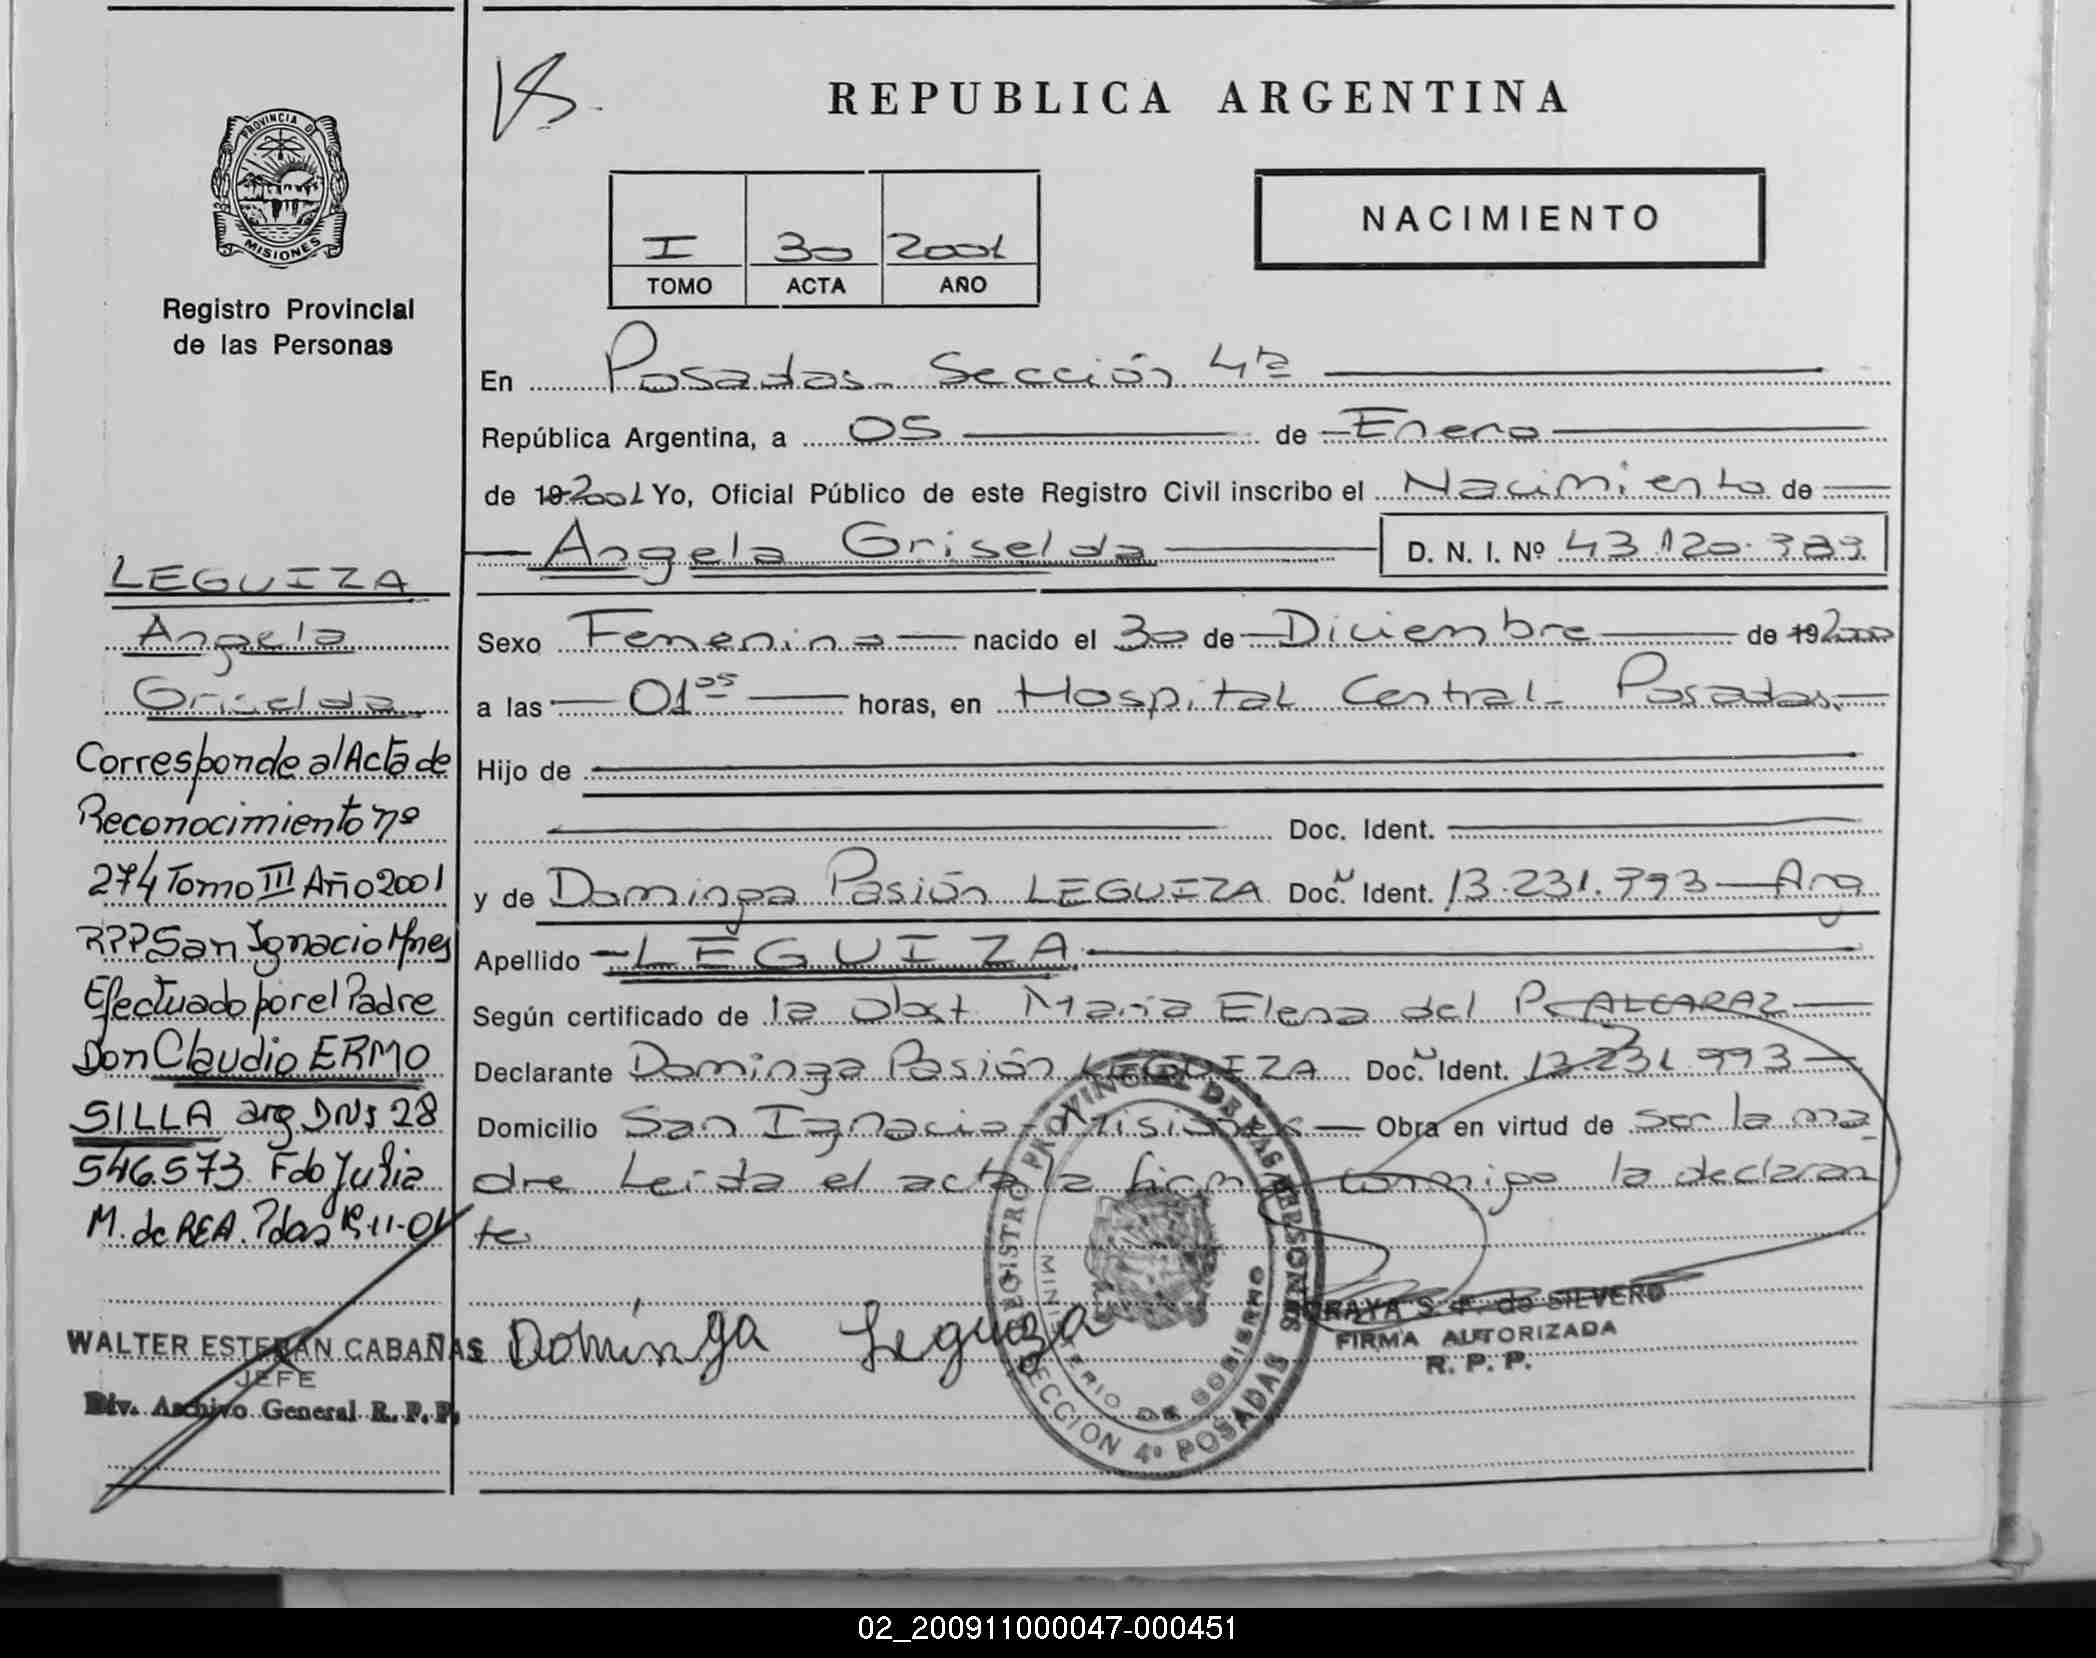 REPUBLICA ARGENTINA
PROVINCIA DE
MISIONES
Registro Provincial
de las Personas
I 30 2001
TOMO ACTA AÑO
NACIMIENTO
En Posadas Sección 4ta
República Argentina, a 05 de Enero
de 19 2001 Yo, Oficial Público de este Registro Civil inscribo el Nacimiento de
Angela Griselda D. N. I. Nº 43.120.389
Sexo Femenino nacido el 30 de Diciembre de 19 2000
a las 01 05 horas, en Hospital Central Posadas
Hijo de
Doc. Ident.
y de Dominga Pasión LEGUIZA Doc. N Ident. 13.231.993 Arg
Apellido LEGUIZA
Según certificado de la Obst María Elena del P. ALCARAZ
Declarante Dominga Pasión LEGUIZA Doc. N Ident. 13.231.993
Domicilio San Ignacio Misiones Obra en virtud de ser la ma
dre Leida el acta la firma conmigo la declaran
te
LEGUIZA
Angela
Griselda
Corresponde al Acta de
Reconocimiento nº
274 Tomo III Año 2001
RPP San Ignacio Mnes
Efectuado por el Padre
Don Claudio ERMO
SILLA arg DNI 28
546.573 Fdo Julia
M. de REA. Pdas 12-11-01
WALTER ESTEBAN CABAÑAS
JEFE
Div. Archivo General R. P. P.
Dominga Leguiza
REGISTRO PROVINCIAL DE LAS PERSONAS
MINISTERIO DE GOBIERNO
SECCION 4º POSADAS
SORAYA S. F. de SILVERO
FIRMA AUTORIZADA
R. P. P.
02_200911000047-000451